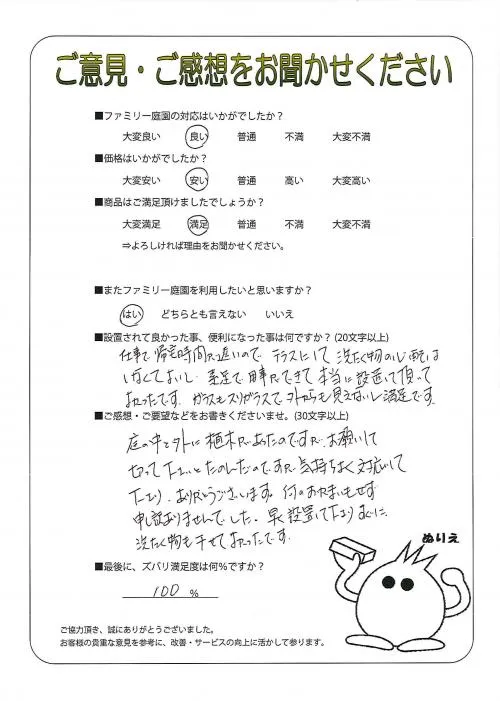 ご意見・ご感想をお聞かせください
■ファミリー庭園の対応はいかがでしたか？
大変良い 良い 普通 不満 大変不満
■価格はいかがでしたか？
大変安い 安い 普通 高い 大変高い
■商品はご満足頂けましたでしょうか？
大変満足 満足 普通 不満 大変不満
⇒よろしければ理由をお聞かせください。
■またファミリー庭園を利用したいと思いますか？
はい どちらとも言えない いいえ
■設置されて良かった事、便利になった事は何ですか？(20文字以上)
仕事で帰宅時間が遅いので、テラスにして洗たく物の心配は
しなくてよいし、本当に設置して頂いて
よかったです。ガラスもスリガラスで外からも見えないし満足です。
■ご感想・ご要望などをお書きくださいませ。(30文字以上)
庭の中と外に植木があったのですが、お願いして
切って下さいとたのんだのですが気持ちよく対応して
下さり、ありがとうございます。何のおかまいもせず
申し訳ありませんでした。早く設置して下さりすぐに
洗たく物も干せてよかったです。
ぬりえ
■最後に、ズバリ満足度は何%ですか？
100 %
ご協力頂き、誠にありがとうございました。
お客様の貴重な意見を参考に、改善・サービスの向上に活かして参ります。